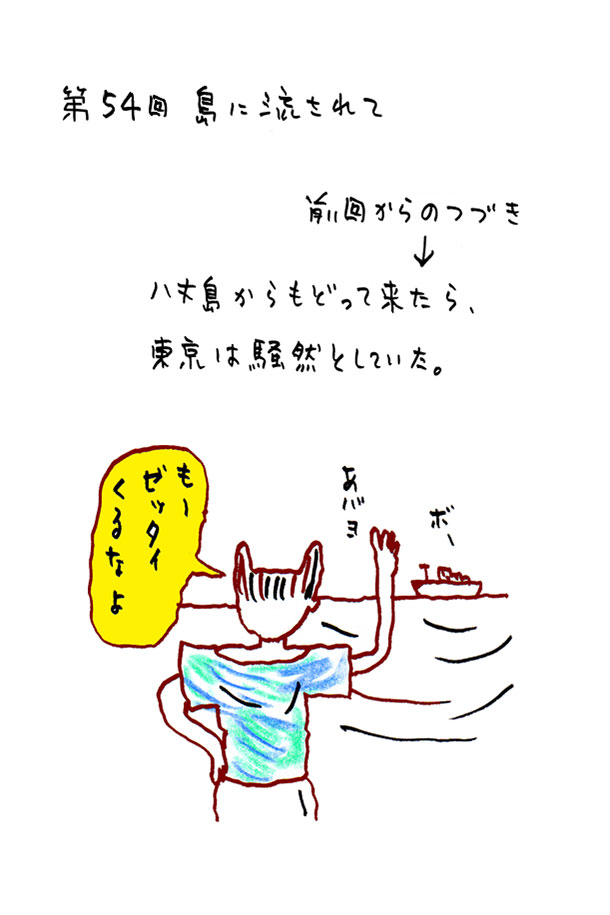 第54回 島に流されて
前回からのつづき
↓
八丈島からもどって来たら、
東京は騒然としていた。
もー
ゼッタイ
くるなよ
あバヨ
ボー